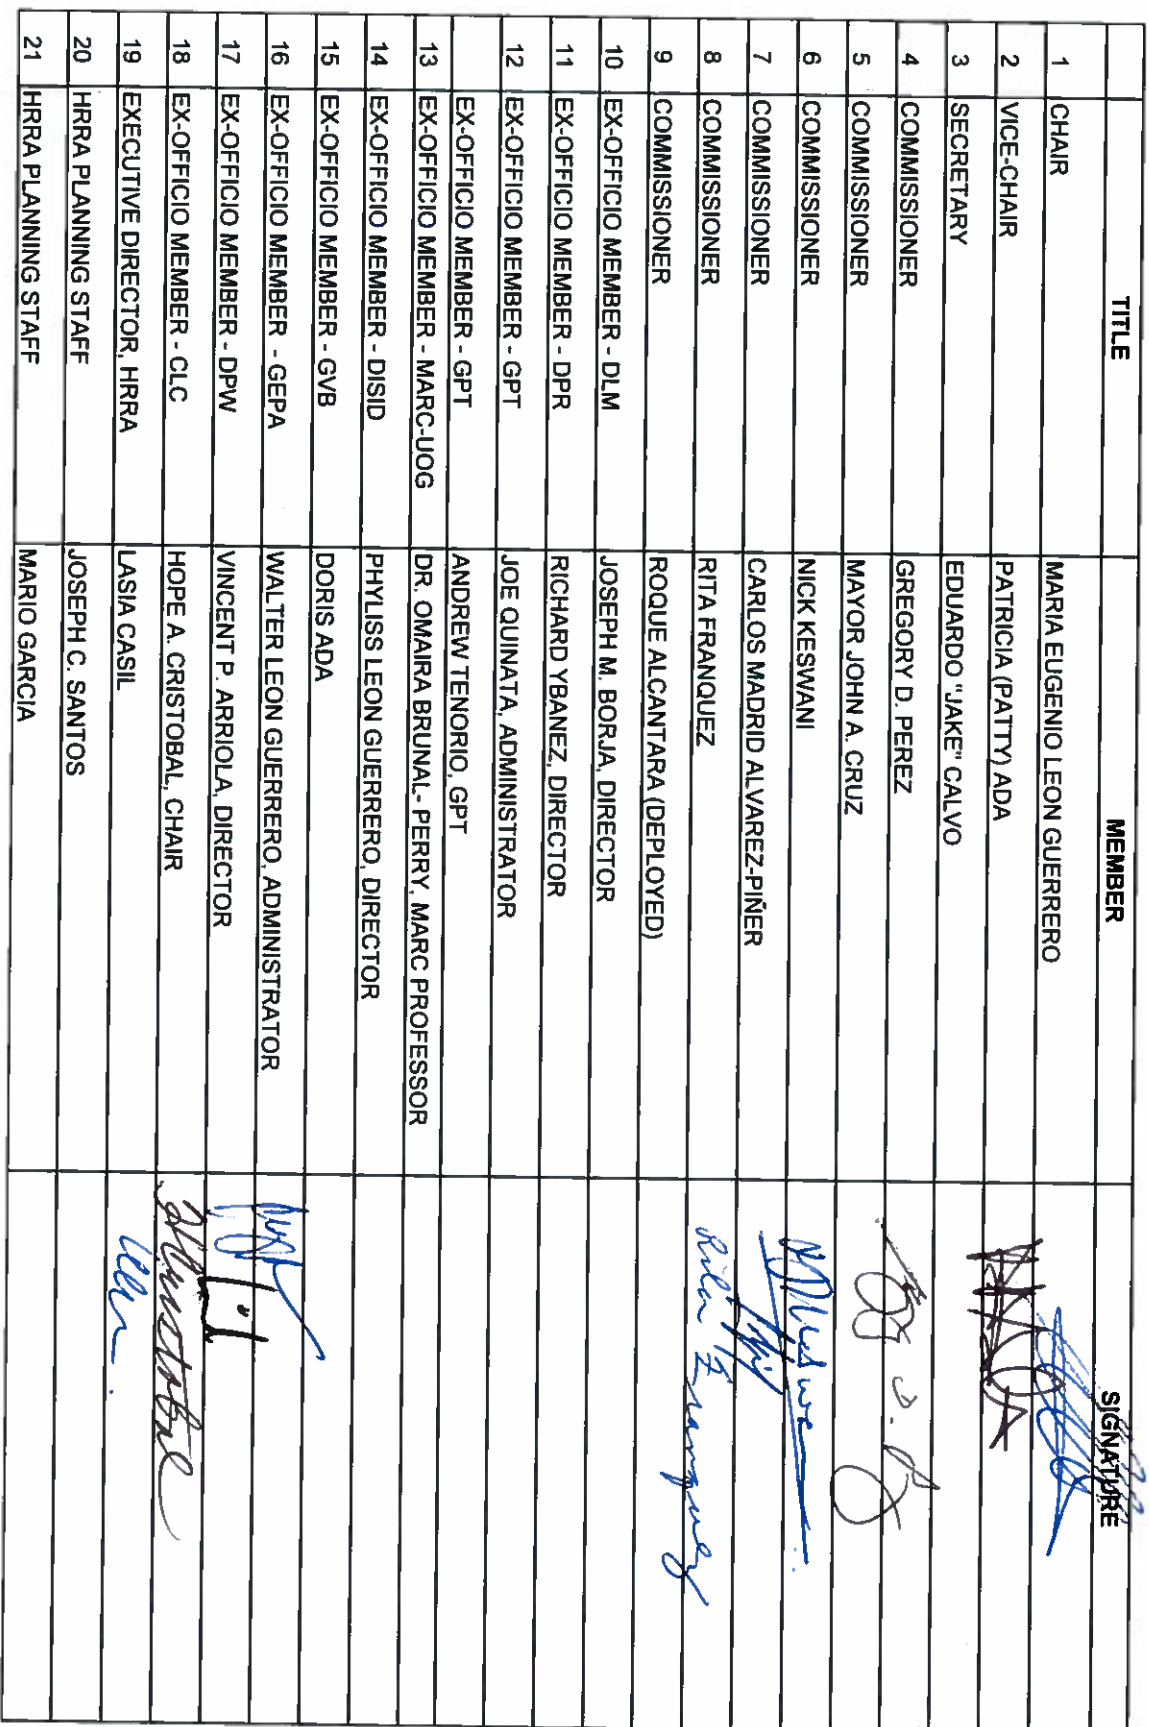 TITLE MEMBER SIGNATURE
1 CHAIR MARIA EUGENIO LEON GUERRERO
2 VICE-CHAIR PATRICIA (PATTY) ADA
3 SECRETARY EDUARDO "JAKE" CALVO
4 COMMISSIONER GREGORY D. PEREZ
5 COMMISSIONER MAYOR JOHN A. CRUZ
6 COMMISSIONER NICK KESWANI
7 COMMISSIONER CARLOS MADRID ALVAREZ-PIÑER
8 COMMISSIONER RITA FRANQUEZ Rita Franquez
9 COMMISSIONER ROQUE ALCANTARA (DEPLOYED)
10 EX-OFFICIO MEMBER - DLM JOSEPH M. BORJA, DIRECTOR
11 EX-OFFICIO MEMBER - DPR RICHARD YBANEZ, DIRECTOR
12 EX-OFFICIO MEMBER - GPT JOE QUINATA, ADMINISTRATOR
EX-OFFICIO MEMBER - GPT ANDREW TENORIO, GPT
13 EX-OFFICIO MEMBER - MARC-UOG DR. OMAIRA BRUNAL- PERRY, MARC PROFESSOR
14 EX-OFFICIO MEMBER - DISID PHYLISS LEON GUERRERO, DIRECTOR
15 EX-OFFICIO MEMBER - GVB DORIS ADA
16 EX-OFFICIO MEMBER - GEPA WALTER LEON GUERRERO, ADMINISTRATOR
17 EX-OFFICIO MEMBER - DPW VINCENT P. ARRIOLA, DIRECTOR
18 EX-OFFICIO MEMBER - CLC HOPE A. CRISTOBAL, CHAIR HACristobal
19 EXECUTIVE DIRECTOR, HRRA LASIA CASIL
20 HRRA PLANNING STAFF JOSEPH C. SANTOS
21 HRRA PLANNING STAFF MARIO GARCIA